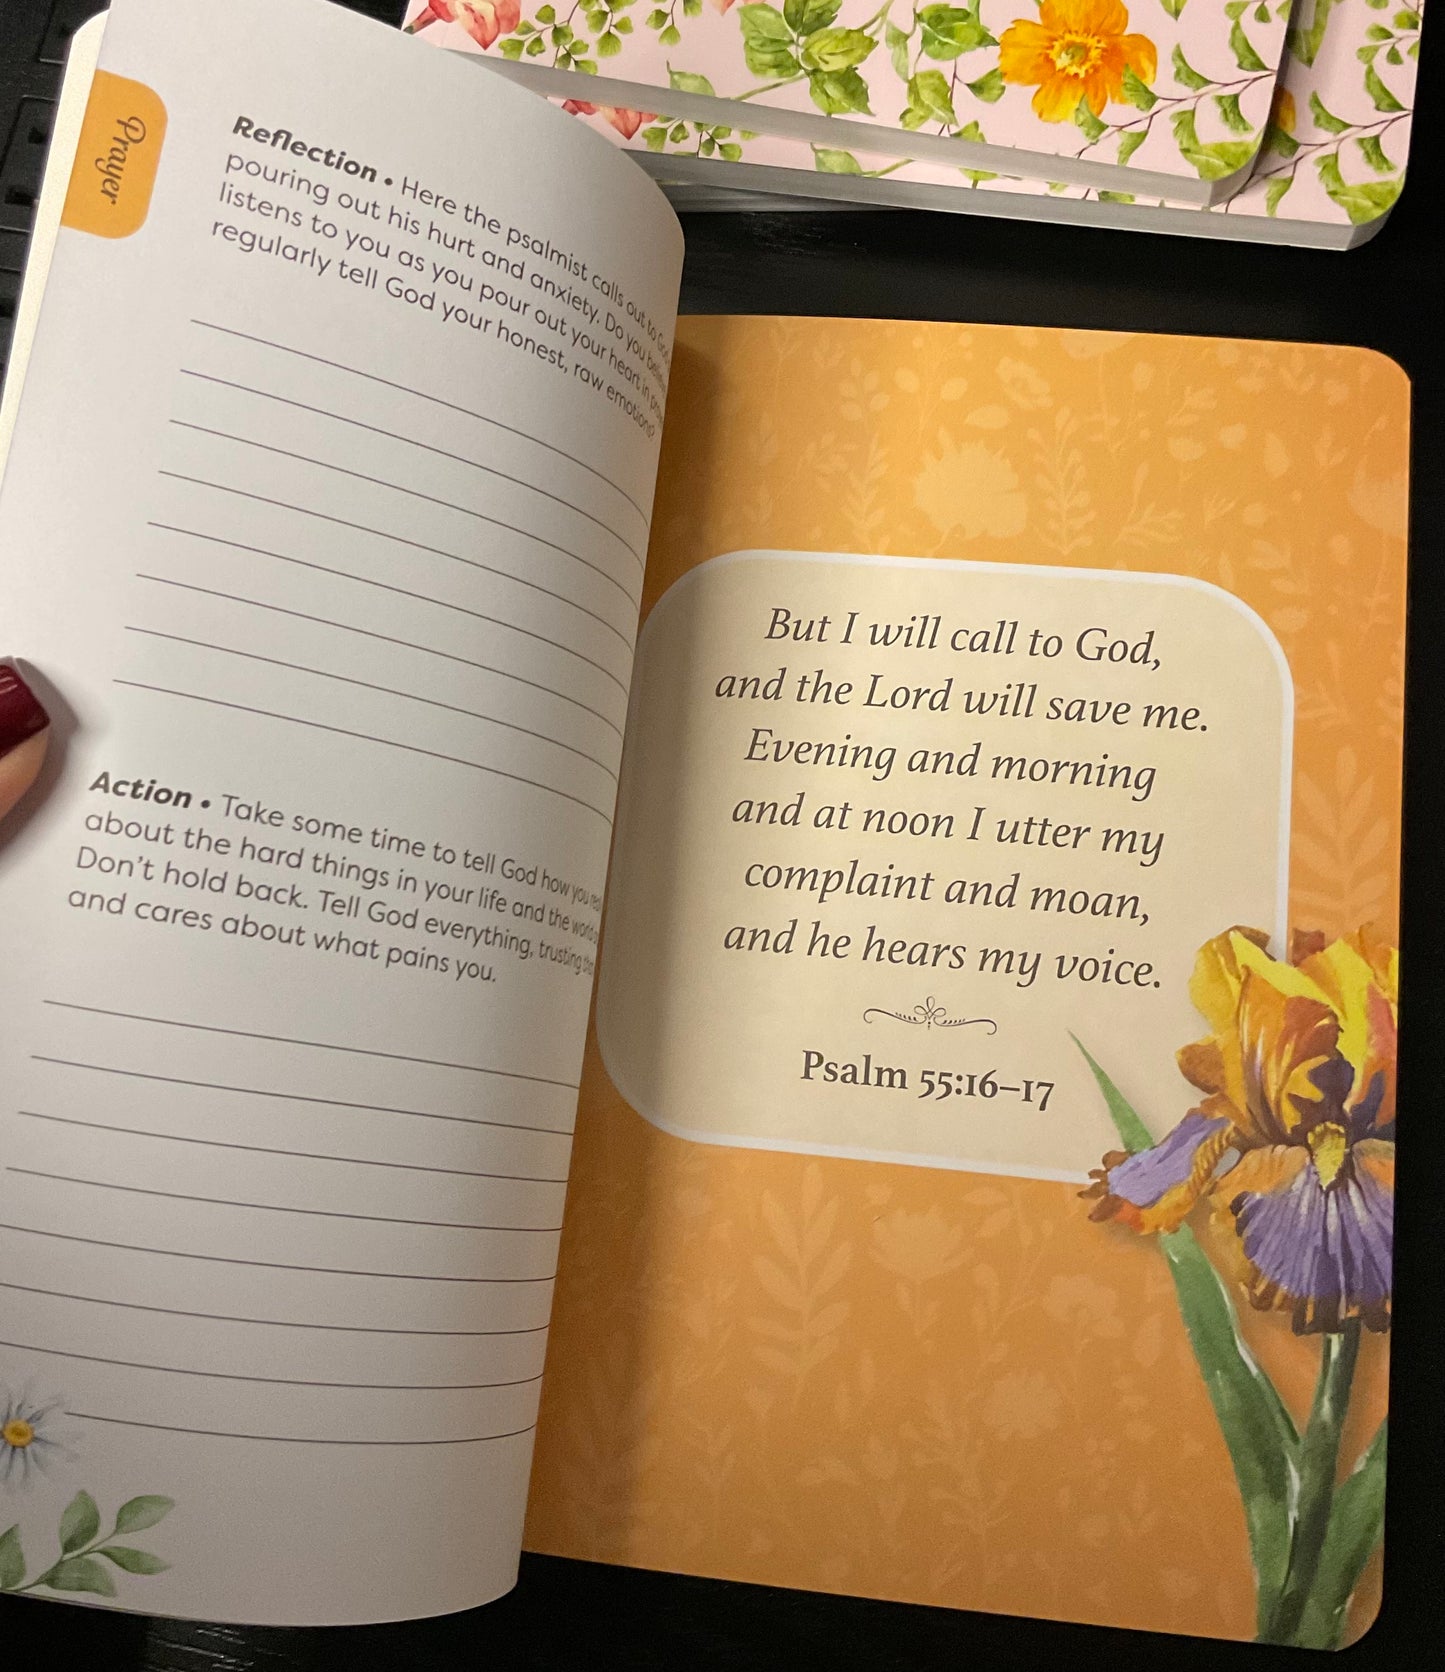 Prayer
Reflection • Here the psalmist calls out to God,
pouring out his hurt and anxiety. Do you
listens to you as you pour out your heart in
regularly tell God your honest, raw emotions?
Action • Take some time to tell God how you
about the hard things in your life and the
Don't hold back. Tell God everything, trusting
and cares about what pains you.
But I will call to God,
and the Lord will save me.
Evening and morning
and at noon I utter my
complaint and moan,
and he hears my voice.
Psalm 55:16–17